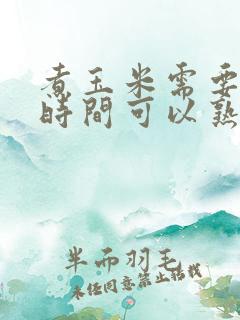 煮玉米需要
時間可以熟
半而羽毛
未任同意禁止搭載